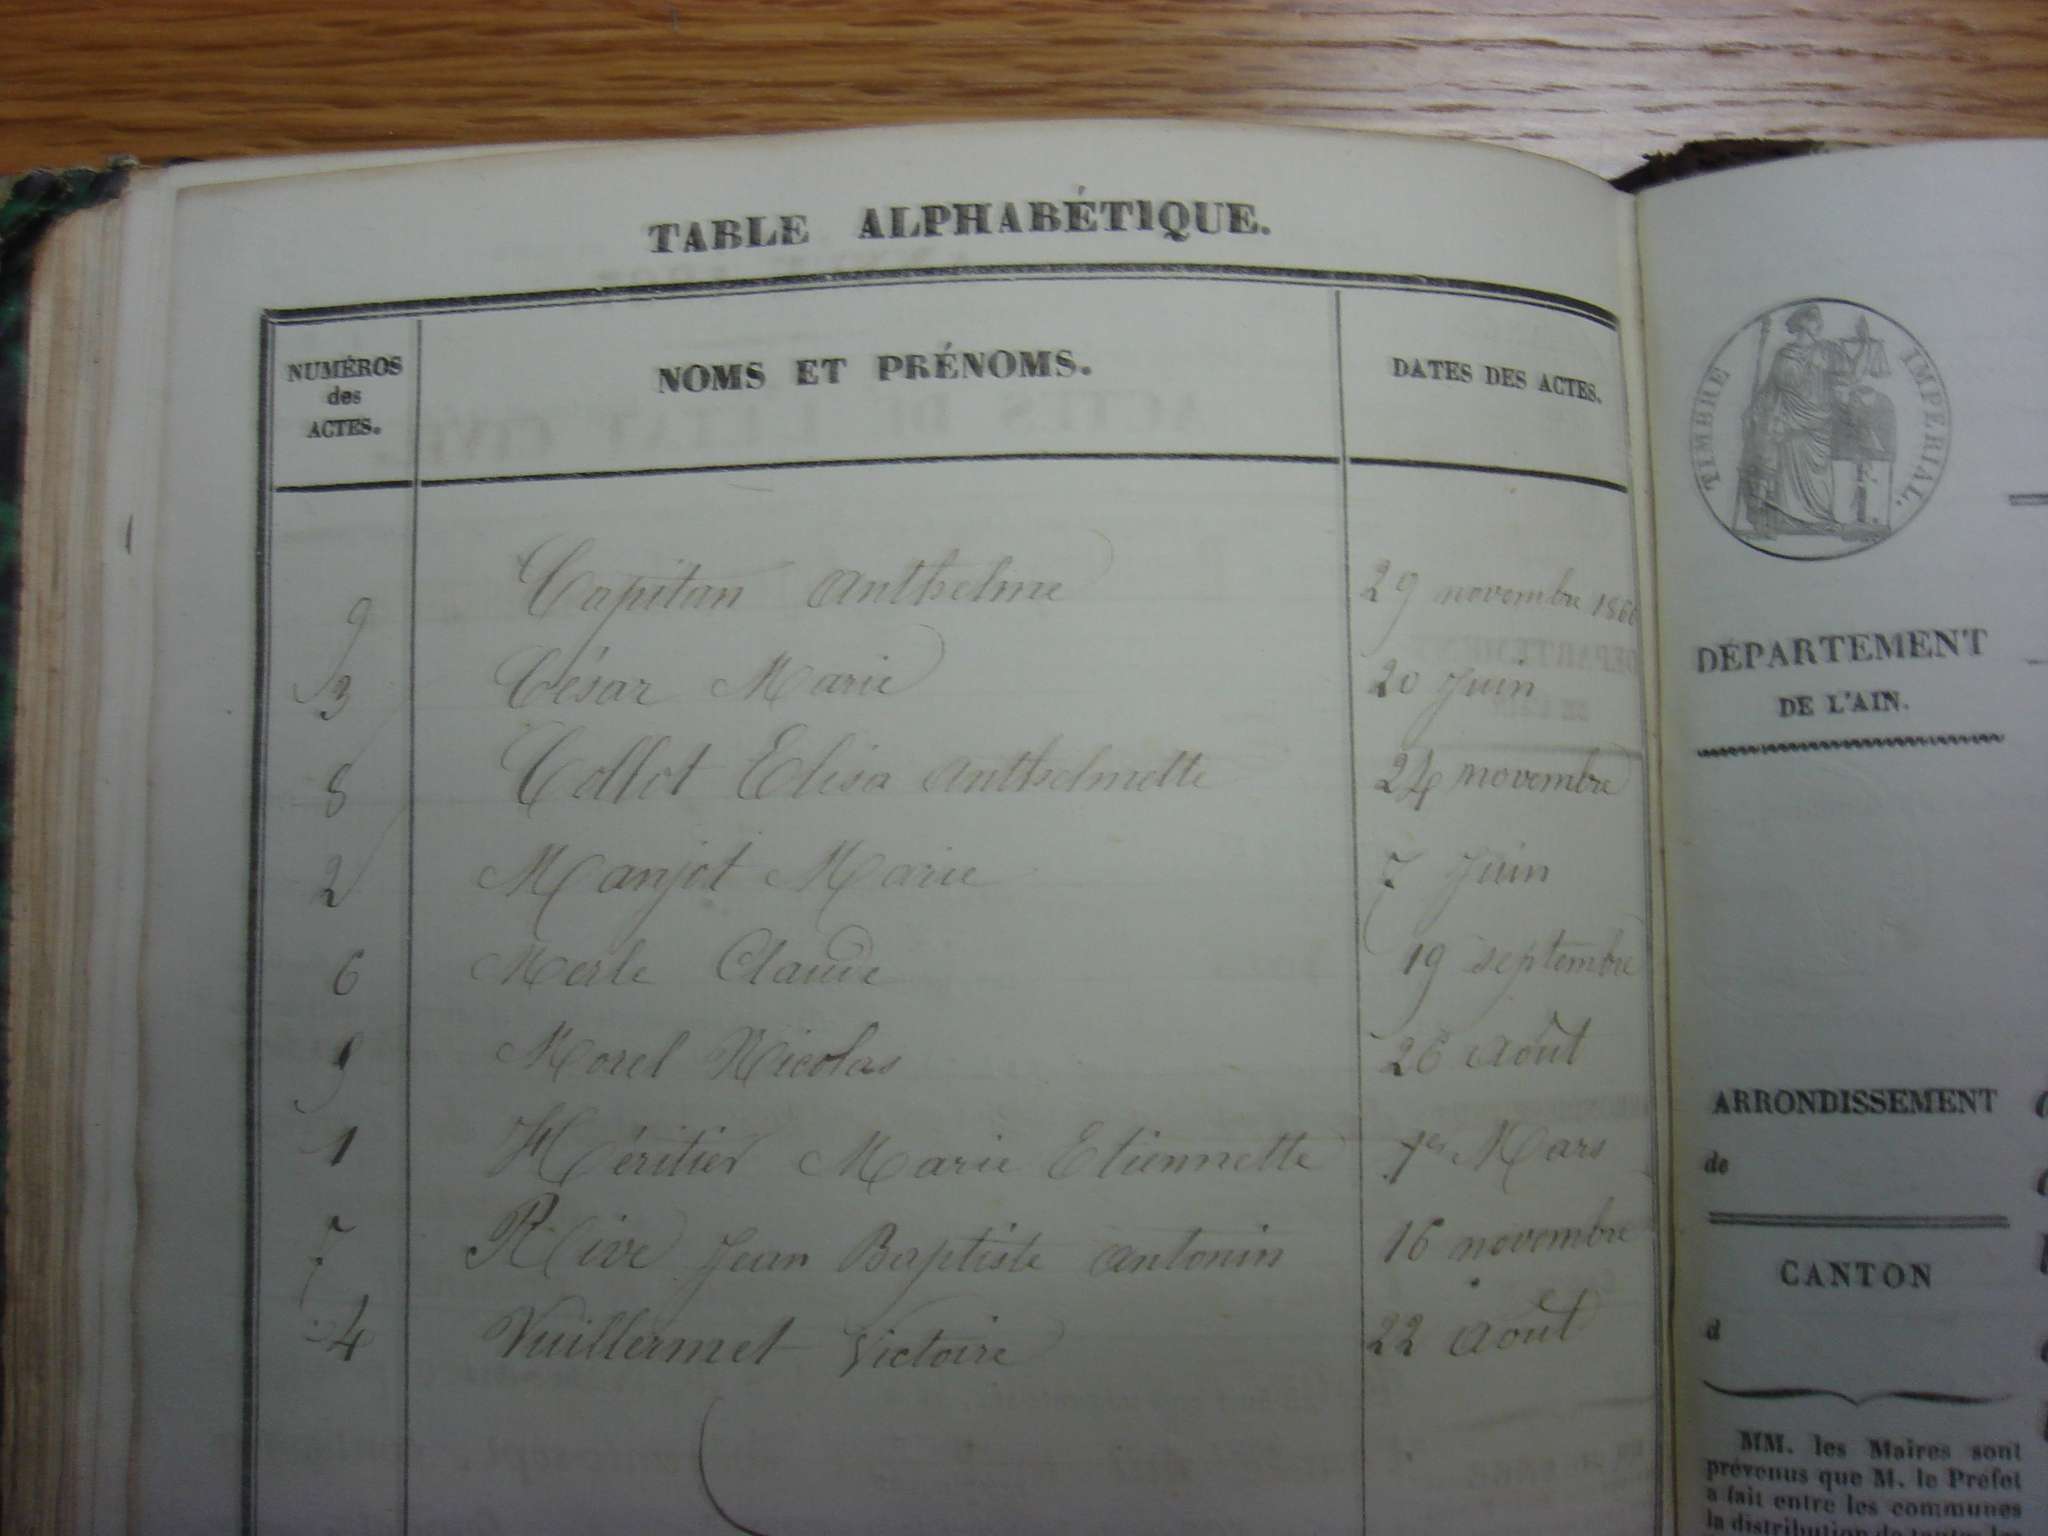 TABLE ALPHABÉTIQUE.
NUMÉROS
des
ACTES.
NOMS ET PRÉNOMS.
DATES DES ACTES.
9 Capitan Anthelme 29 novembre 1866
3 César Marie 20 Juin
8 Collot Elisa Anthelmette 24 novembre
2 Manjot Marie 7 Juin
6 Merle Claude 19 septembre
5 Morel Nicolas 26 Août
1 Héritier Marie Etiennette 1er Mars
7 Rive Jean Baptiste Antonin 16 novembre
4 Vuillermet Victoire 22 Août
TIMBRE IMPÉRIAL.
DÉPARTEMENT
DE L'AIN.
ARRONDISSEMENT
de
CANTON
d
MM. les Maires sont
prévenus que M. le Préfet
a fait entre les communes
la distribution